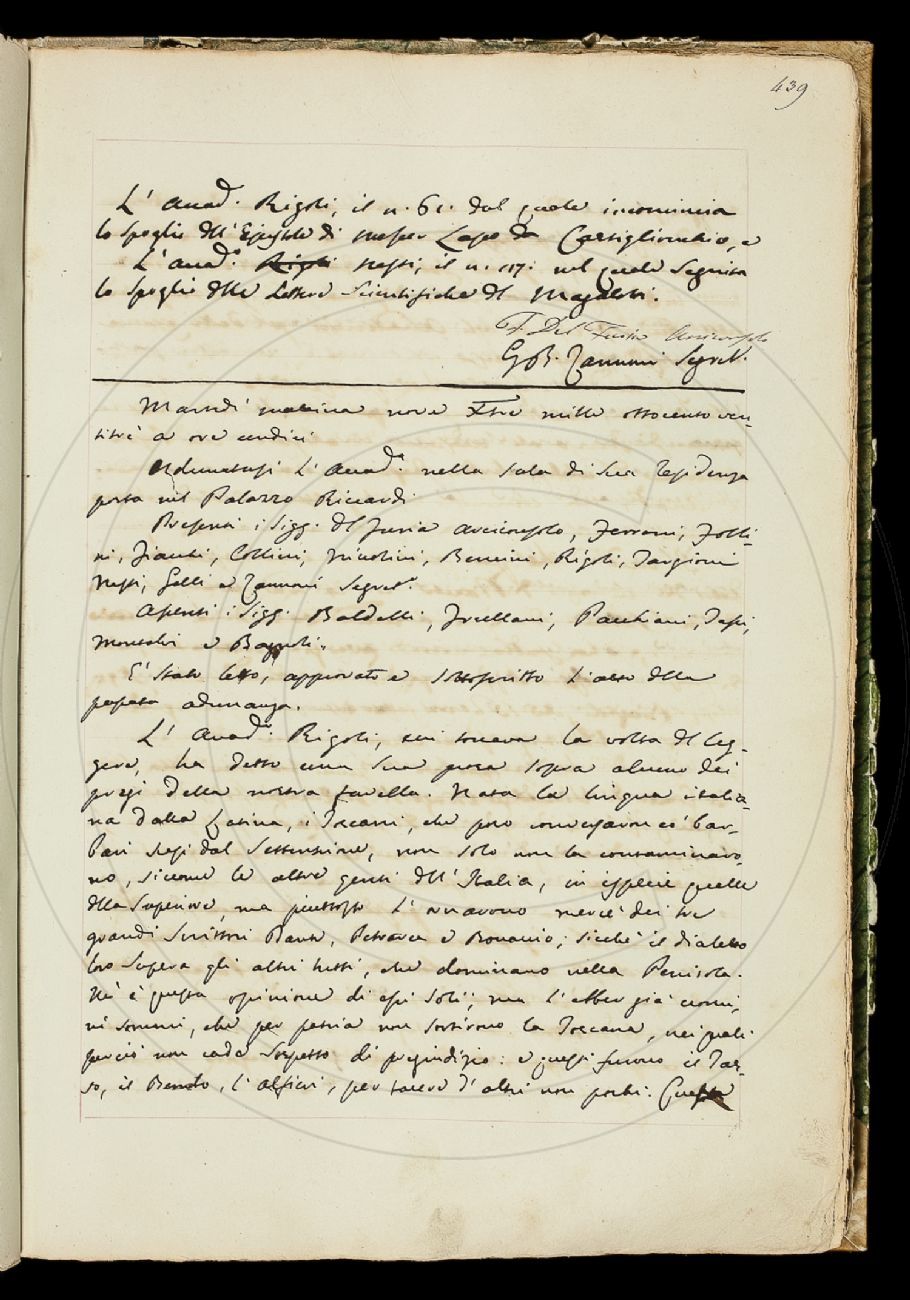 439
L' Accad.º Rigoli, il n. 61. dal quale incomincia
lo spoglio dell' Epistole di messer Lapo da Castiglionchio, e
L' Accad.º Rigoli Nesti, il n. 117: nel quale seguita
lo spoglio delle Lettere Scientifiche del Magalotti.
F. Del Furia Arciconsolo
G. B. Zannoni Segret.º
Martedì mattina nove Xbre mille ottocento ven-
titrè a ore undici
Adunatasi l' Accad.ª nella sala di sua residenza
posta nel Palazzo Riccardi
Presenti i Sigg. del Furia Arciconsolo, Ferroni, Folli-
ni, Fiacchi, Collini, Niccolini, Bencini, Rigoli, Targioni
Nesti, Gelli e Zannoni Segret.º
Assenti i Sigg. Baldelli, Frullani, Pacchiani, Tassi,
Montalvi e Bagnoli.
E' stato letto, approvato e sottoscritto l' atto della
passata adunanza.
L' Accad.º Rigoli, cui toccava la volta di leg-
gere, ha detto una sua prosa sopra alcuno dei
pregi della nostra favella. Nata la lingua italia-
na dalla Latina, i Toscani, che poco conversaron co' bar-
bari scesi dal Settentrione, non solo non la contaminaro-
no, siccome le altre genti dell' Italia, in ispecie quelle
della Superiore, ma piuttosto l' ornarono mercè dei tre
grandi Scrittori Dante, Petrarca e Boccaccio; sicchè il dialetto
loro supera gli altri tutti, che dominano nella Penisola.
Nè è questa opinione di essi soli; ma l' ebber già uomi-
ni sommi, che per patria non sortirono la Toscana, nei quali
perciò non cade sospetto di pregiudizio: e questi furono il Tas-
so, il Bembo, l' Alfieri, per tacere d' altri non pochi. Questa